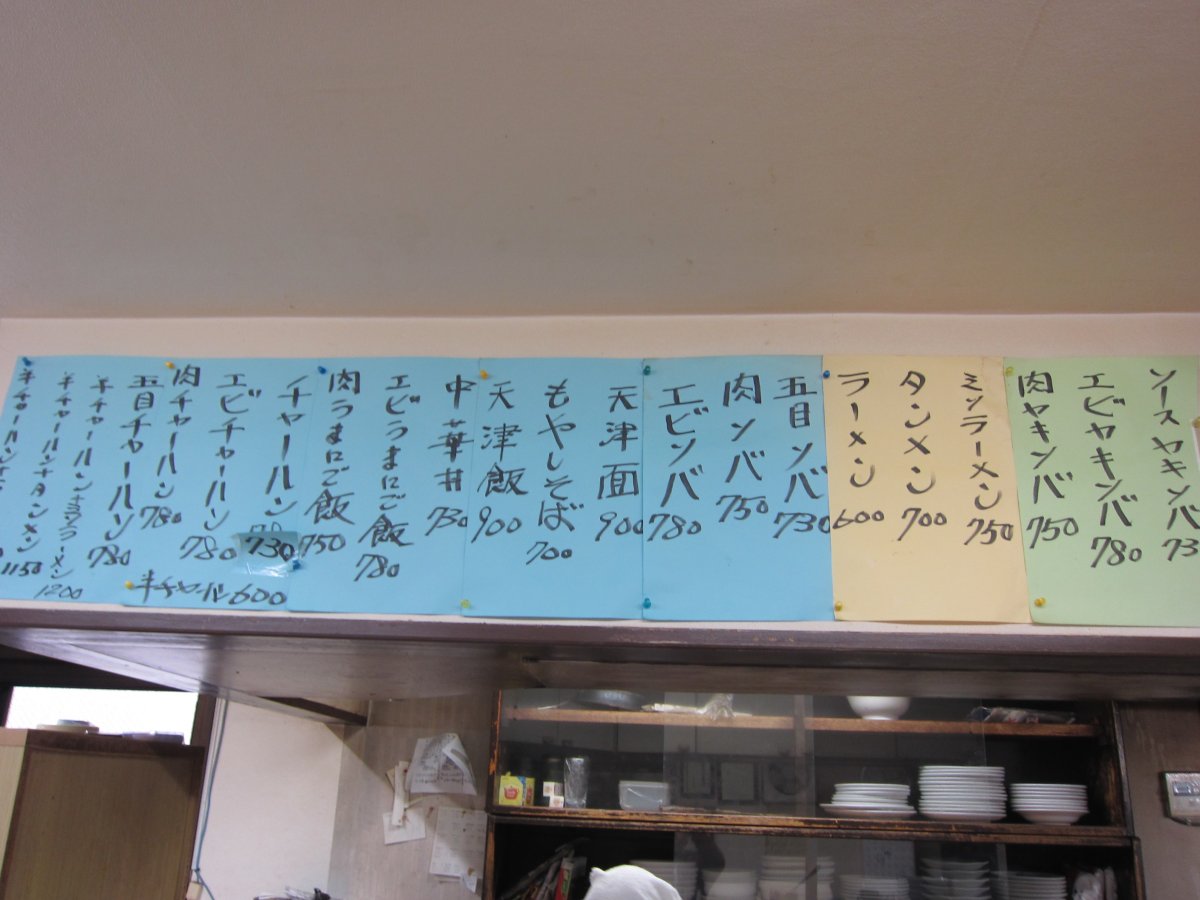 ソースヤキソバ 73
エビヤキソバ 780
肉ヤキソバ 750
ミソラーメン 750
タンメン 700
ラーメン 600
五目ソバ 730
肉ソバ 750
エビソバ 780
天津面 900
もやしそば 700
天津飯 900
中華丼 730
エビうまにご飯 780
肉うまにご飯 750
チャーハン 730
エビチャーハン 780
肉チャーハン 780
五目チャーハン 780
半チャーハン+ミソラーメン 1200
半チャーハン+タンメン 1150
半チャーハン
半チャーハン 600